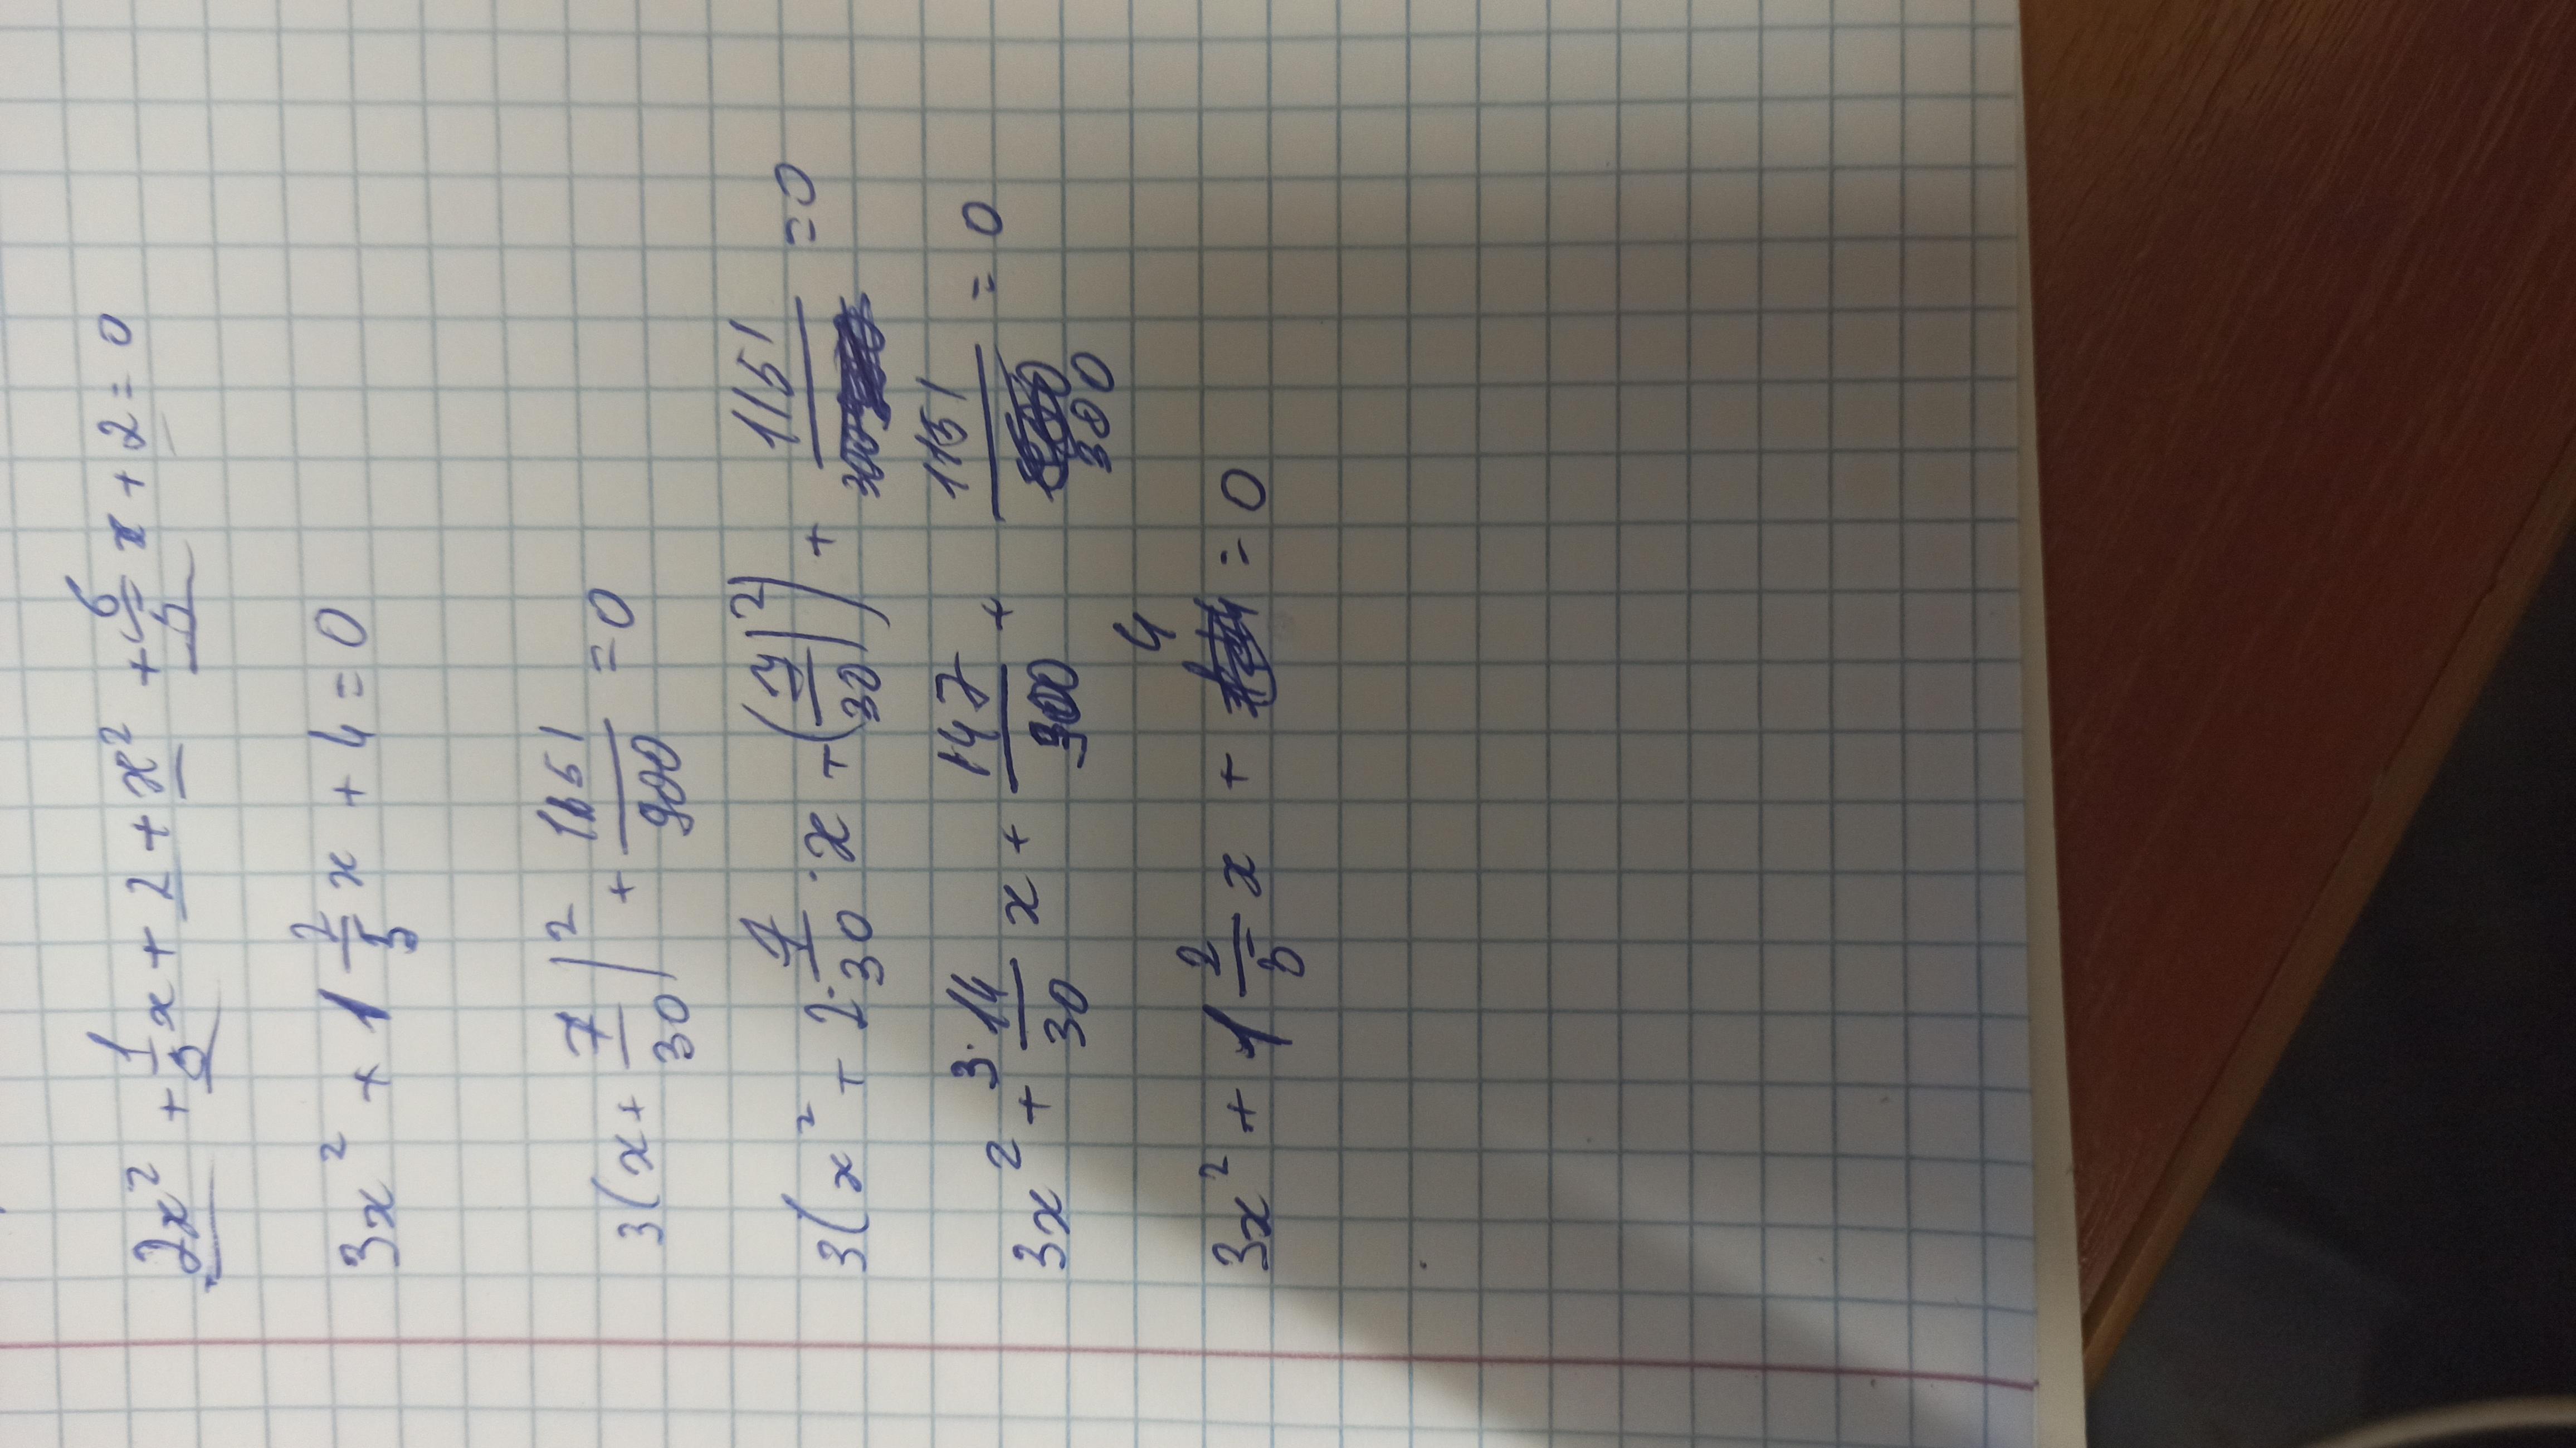 2x² + 1/5 x + 2 + x² + 6/5 x + 2 = 0
3x² + 1 2/5 x + 4 = 0
3(x + 7/30)² + 1151/900 = 0
3(x² + 2·7/30·x + (7/30)²) + 1151/300 = 0
3x² + 3·14/30 x + 147/900 + 1151/300 = 0
3x² + 1 2/5 x + 4 = 0